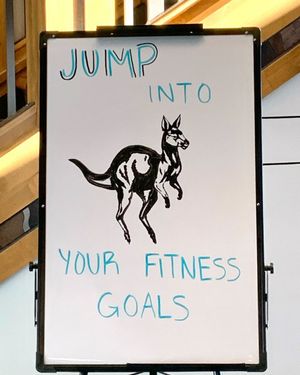 JUMP
INTO
YOUR FITNESS
GOALS